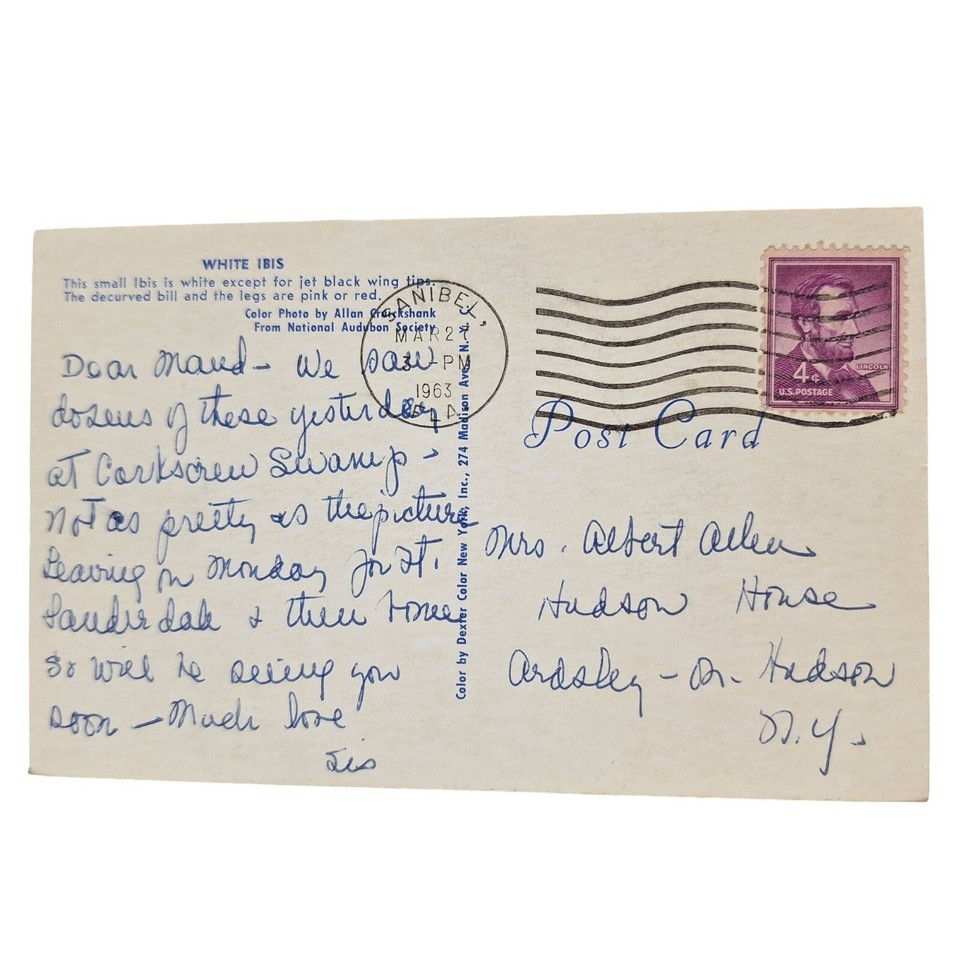 WHITE IBIS
This small Ibis is white except for jet black wing tips.
The decurved bill and the legs are pink or red.
Color Photo by Allan Cruickshank
From National Audubon Society
Dear Maud - We saw
dozens of these yesterday
at Corkscrew Swamp -
Not as pretty as the picture
Leaving on Monday for Ft.
Lauderdale & then home
So will be seeing you
soon - Much love
Sis
Color by Dexter Color New York, Inc., 274 Madison Ave., N.Y.
SANIBEL,
MAR 27
3 - PM
1963
FLA.
LINCOLN
4¢
U.S. POSTAGE
Post Card
Mrs. Albert Allen
Hudson House
Ardsley - on - Hudson
N.Y.